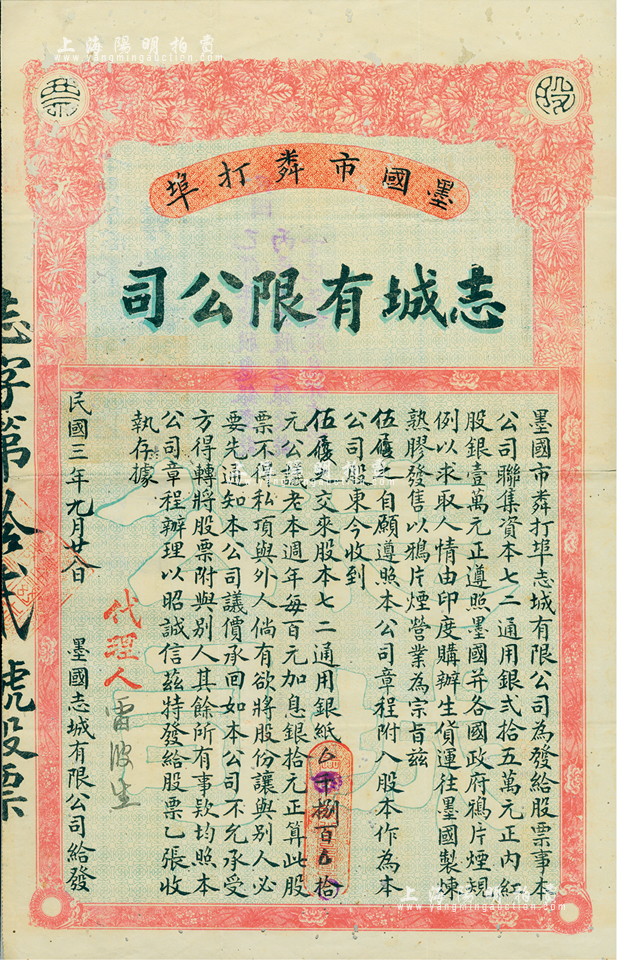 上海陽明拍賣
www.yangmingauction.com
股票
墨國市舞打埠
志城有限公司
墨國市舞打埠志城有限公司為發給股票事本
公司聯集資本七二通用銀弍拾五萬元正內紅
股銀壹萬元正遵照墨國并各國政府鴉片煙規
例以求取人情由印度購辦生貨運往墨國製煉
熟膠發售以鴉片煙營業為宗旨茲
自願遵照本公司章程附入股本作為本
公司股東今收到
交來股本七二通用銀紙 千捌百 拾
元公議老本週年每百元加息銀拾元正算此股
票不得私項與外人倘有欲將股份讓與別人必
要先通知本公司議價承回如本公司不允承受
方得轉將股票附與別人其餘所有事欵均照本
公司章程辦理以昭誠信茲特發給股票乙張收
執存據
代理人 雷波生
民國三年九月廿八日 墨國志城有限公司給發
志字第拾弍號股票
上海陽明拍賣
www.yangmingauction.com
上海陽明拍賣
www.yangmingauction.com